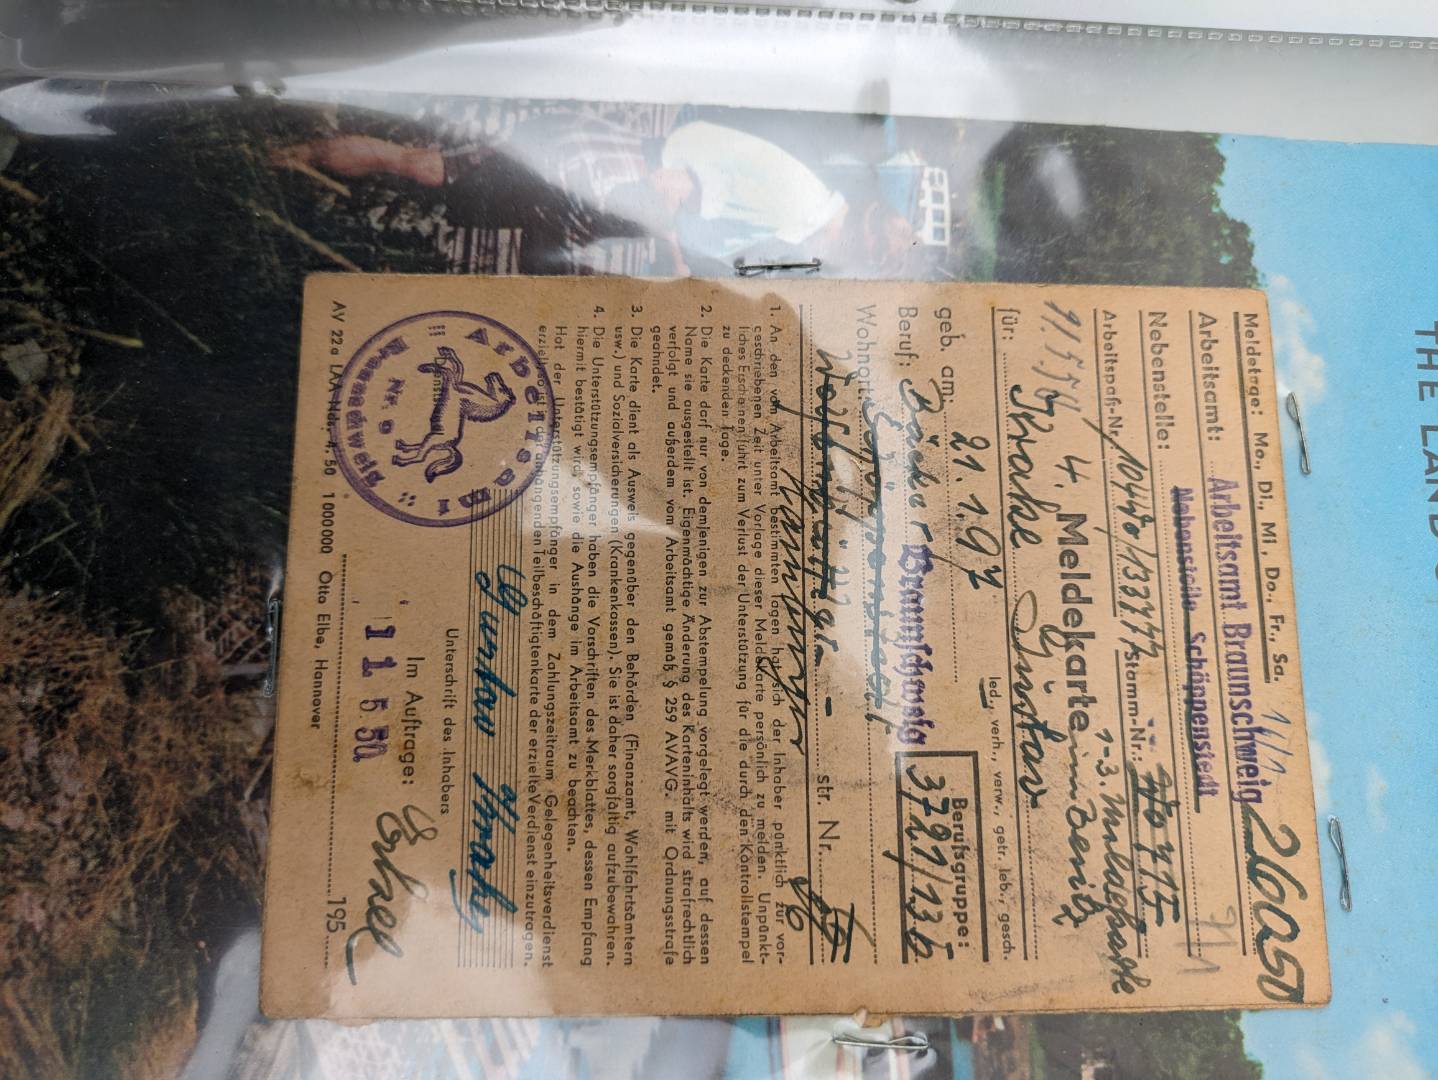 Meldetage: Mo., Di., Mi., Do., Fr., Sa.
Arbeitsamt: Arbeitsamt Braunschweig 260a50
Nebenstelle: Nebenstelle Schöppenstedt
Arbeitspaß-Nr. Stamm-Nr.:
4. Meldekarte
für: Krahe Gustav
led., verh., verw., getr. leb., gesch.
geb. am: 21.1.97
Beruf: Bäcker Braunschweig
Berufsgruppe:
Wohnort: Schöppenstedt
str. Nr.
1. An den vom Arbeitsamt bestimmten Tagen hat sich der Inhaber pünktlich zur vor-
geschriebenen Zeit unter Vorlage dieser Meldekarte persönlich zu melden. Unpünkt-
liches Erscheinen führt zum Verlust der Unterstützung für die durch den Kontrollstempel
zu deckenden Tage.
2. Die Karte darf nur von demjenigen zur Abstempelung vorgelegt werden, auf dessen
Name sie ausgestellt ist. Eigenmächtige Änderung des Karteninhalts wird strafrechtlich
verfolgt und außerdem vom Arbeitsamt gemäß § 259 AVAVG. mit Ordnungsstrafe
geahndet.
3. Die Karte dient als Ausweis gegenüber den Behörden (Finanzamt, Wohlfahrtsämtern
usw.) und Sozialversicherungen (Krankenkassen). Sie ist daher sorgfältig aufzubewahren.
4. Die Unterstützungsempfänger haben die Vorschriften des Merkblattes, dessen Empfang
hiermit bestätigt wird, sowie die Aushänge im Arbeitsamt zu beachten.
Hat der Unterstützungsempfänger in dem Zahlungszeitraum Gelegenheitsverdienst
erzielt, so ist in der anhängenden Teilbeschäftigtenkarte der erzielte Verdienst einzutragen.
Gustav Krahe
Unterschrift des Inhabers
Arbeitsamt
Dienststempel
Nr. 8
Braunschweig
Im Auftrage:
11 5. 50
195
AV 22a LAA Nds. 4. 50 1 000 000 Otto Elbe, Hannover
THE LAND OF